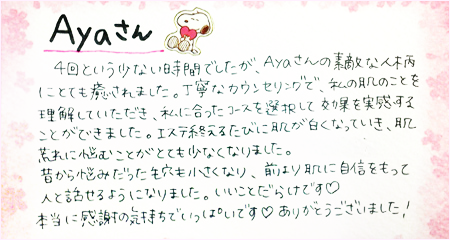 Ayaさん
4回という少ない時間でしたが、Ayaさんの素敵な人柄
にとても癒されました。丁寧なカウンセリングで、私の肌のことを
理解していただき、私に合ったコースを選択して効果を実感する
ことができました。エステ終えるたびに肌が白くなっていき、肌
荒れに悩むことがとても少なくなりました。
昔から悩みだった毛穴も小さくなり、前より肌に自信をもって
人と話せるようになりました。いいことだらけです♡
本当に感謝の気持ちでいっぱいです♡ ありがとうございました！